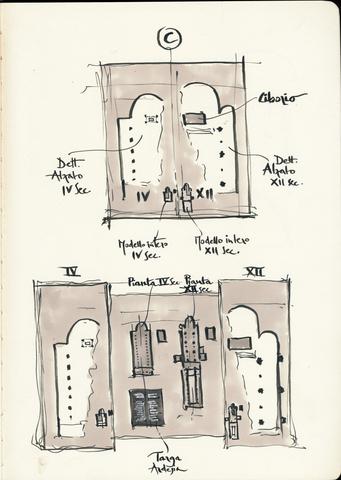 C
Ciborio
Dett.
Alzato
IV Sec
Dett.
Alzato
XII sec.
IV XII
Modello intero
IV Sec.
Modello intero
XII Sec.
IV
Pianta IV sec
Pianta
XII sec
XII
Targa
Ardesia